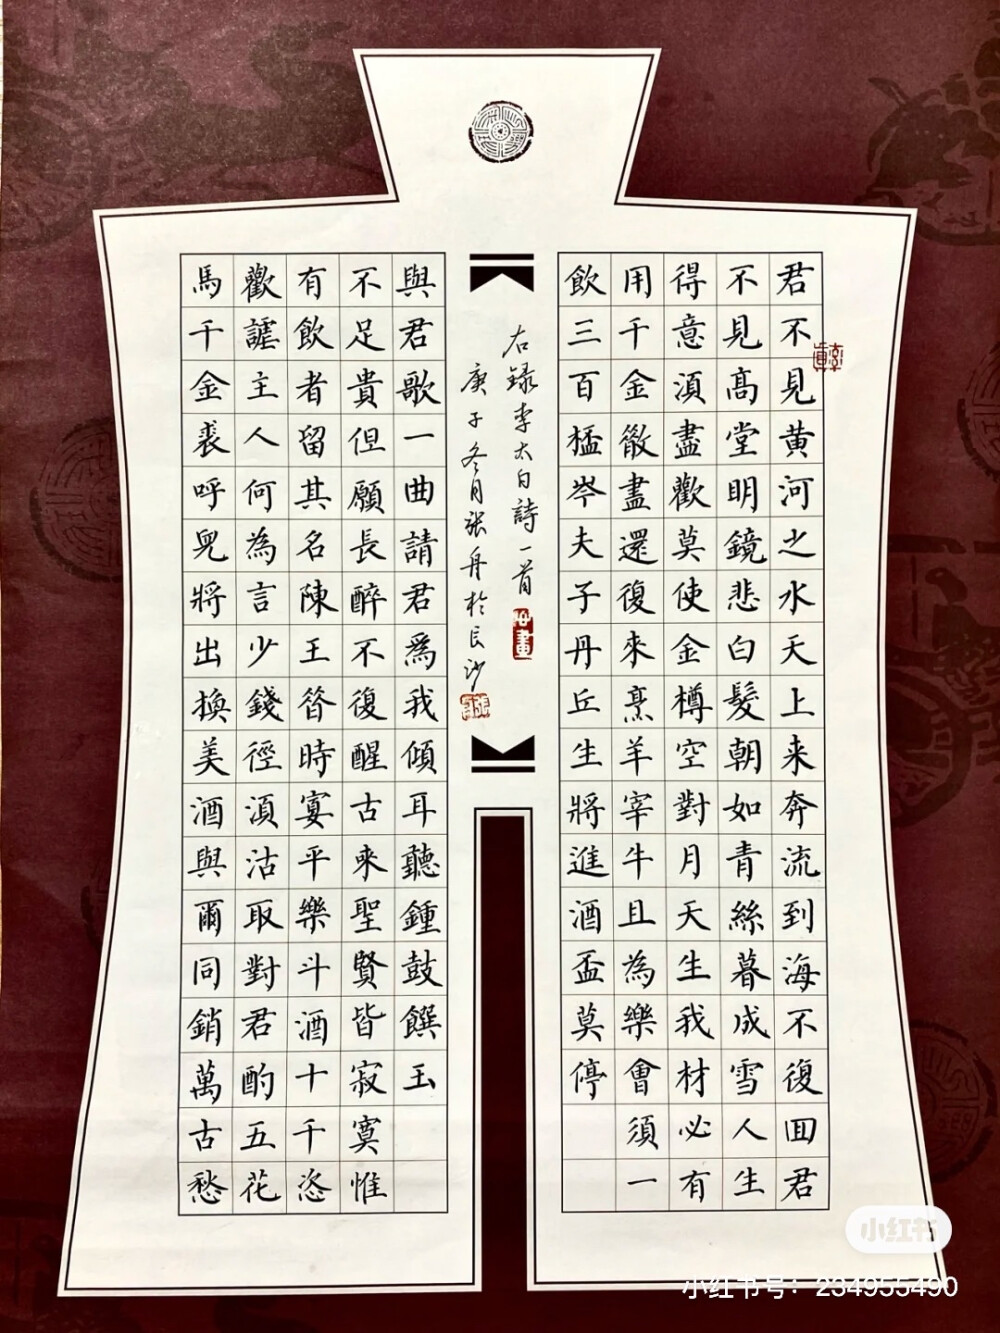 君不見黄河之水天上来奔流到海不復囬君
不見髙堂明鏡悲白髮朝如青絲暮成雪人生
得意湏盡歡莫使金樽空對月天生我材必有
用千金散盡還復來烹羊宰牛且為樂會須一
飲三百桮岑夫子丹丘生將進酒盃莫停
右録李太白詩一首
庚子冬月張丹於長沙
與君歌一曲請君爲我傾耳聽鍾鼓饌玉
不足貴但願長醉不復醒古來聖賢皆寂寞惟
有飲者留其名陳王昝時宴平樂斗酒十千恣
歡謔主人何為言少錢徑湏沽取對君酌五花
馬千金裘呼兒將出換美酒與爾同銷萬古愁
小红书
小红书号：234955490